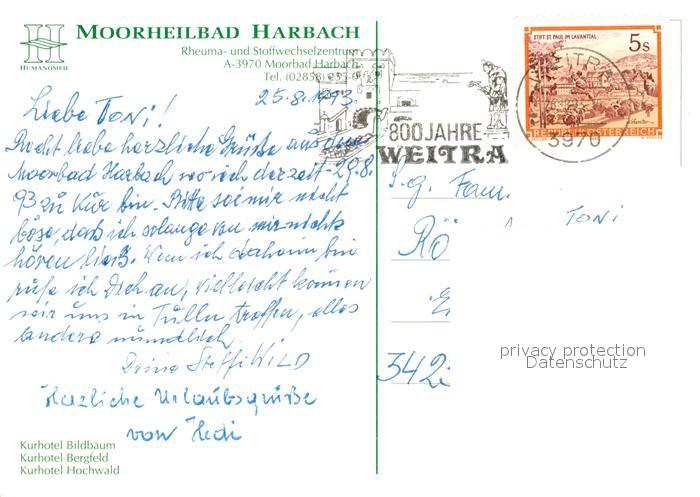 MOORHEILBAD HARBACH
Rheuma- und Stoffwechselzentrum
A-3970 Moorbad Harbach
Tel. (02858) 255-0
HUMANOMED
25.8.1993
Liebe Toni!
Recht liebe herzliche Grüße aus dem
Moorbad Harbach wo ich derzeit - 29.8.
93 zu Kur bin. Bitte sei mir nicht
böse, daß ich solange von mir nichts
hören ließ. Wenn ich daheim bin
rufe ich Dich an, vielleicht können
wir uns in Tulln treffen, alles
andere mündlich.
Deine Steffi WILD
Herzliche Urlaubsgrüße
von Hedi
Kurhotel Bildbaum
Kurhotel Bergfeld
Kurhotel Hochwald
800 JAHRE
WEITRA
WEITRA
3970
STIFT ST. PAUL IM LAVANTTAL
5 S
REPUBLIK ÖSTERREICH
S.g. Fam.
RÖ
TONI
342
privacy protection
Datenschutz